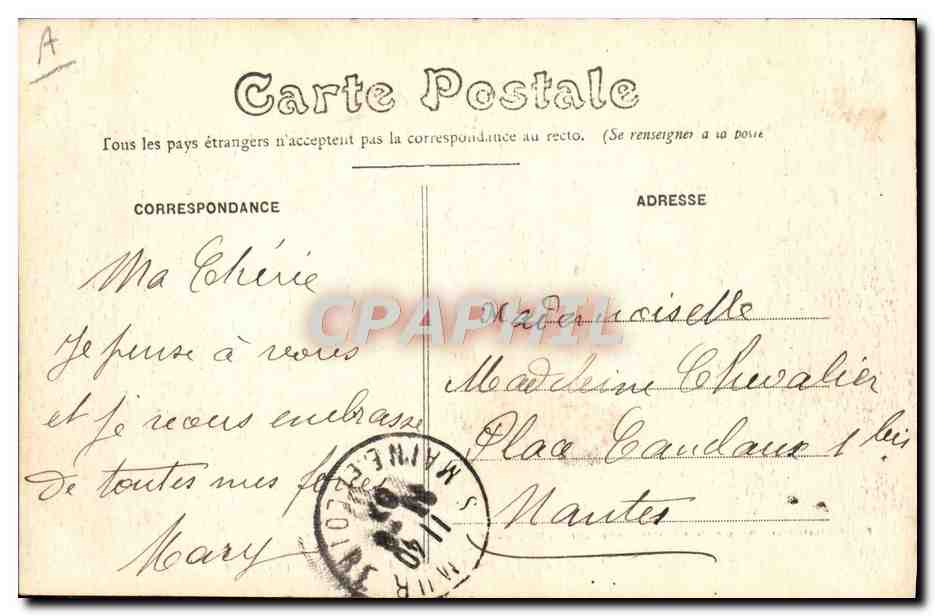 A
Carte Postale
Tous les pays étrangers n'acceptent pas la correspondance au recto. (Se renseigner à la poste
CORRESPONDANCE
Ma Chérie
Je pense à vous
et je vous embrasse
de toutes mes forces
Mary
ADRESSE
Mademoiselle
Madeleine Chevalier
Place 1 bis
Nantes
CPAPHIL
MAINE-ET-LOIRE
11 40